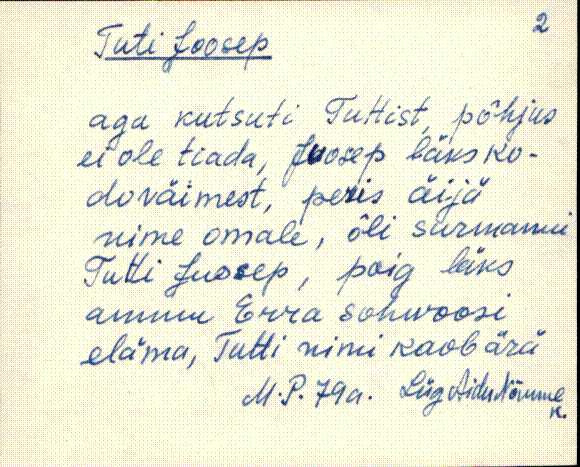 2
Tuti Joosep
aga kutsuti Tuttist, põhjus
ei ole tiada, Juosep läks ko-
doväimest, peris äijä
nime omale, õli surmani
Tutti Juosep, poig läks
ammu Erra sohvoosi
eläma, Tutti nimi kaob ärä
M.P. 79a. Lüg Aidu Nõmme
k.